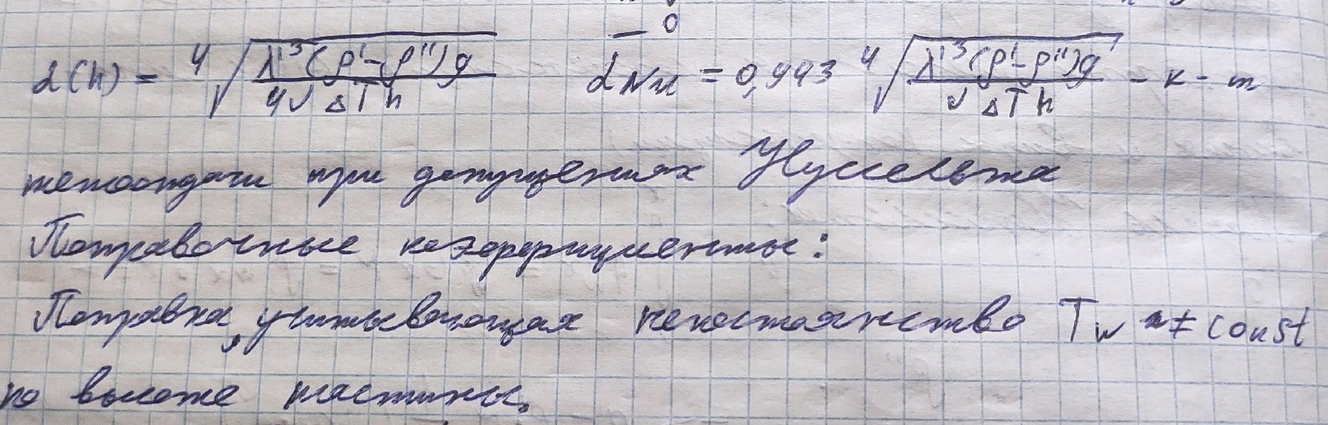 0
α(h) = ⁴√(λ'³(ρ'-ρ")g / 4ν ΔT h)   αNu = 0,943 ⁴√(λ'³(ρ'-ρ")g / ν ΔT h) - к - т
теплоотдачи при допущениях Нуссельта
Поправочные коэффициенты:
Поправка, учитывающая непостоянство Tw ≠ const
по высоте пластины.